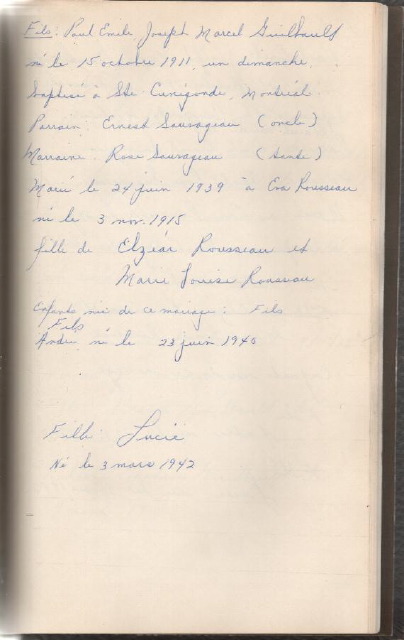 Fils: Paul Emile Joseph Marcel Guilbault
né le 15 octobre 1911, un dimanche,
baptisé à Ste Cunégonde, Montréal.
Parrain Ernest Sauvageau (oncle)
Marraine Rose Sauvageau (tante)
Marié le 24 juin 1939 à Eva Rousseau
né le 3 nov. 1915
fille de Elzéar Rousseau et
Marie Louise Rousseau
Enfants nés de ce mariage: Fils
Fils
André né le 23 juin 1940
Fille Lucie
Né le 3 mars 1942